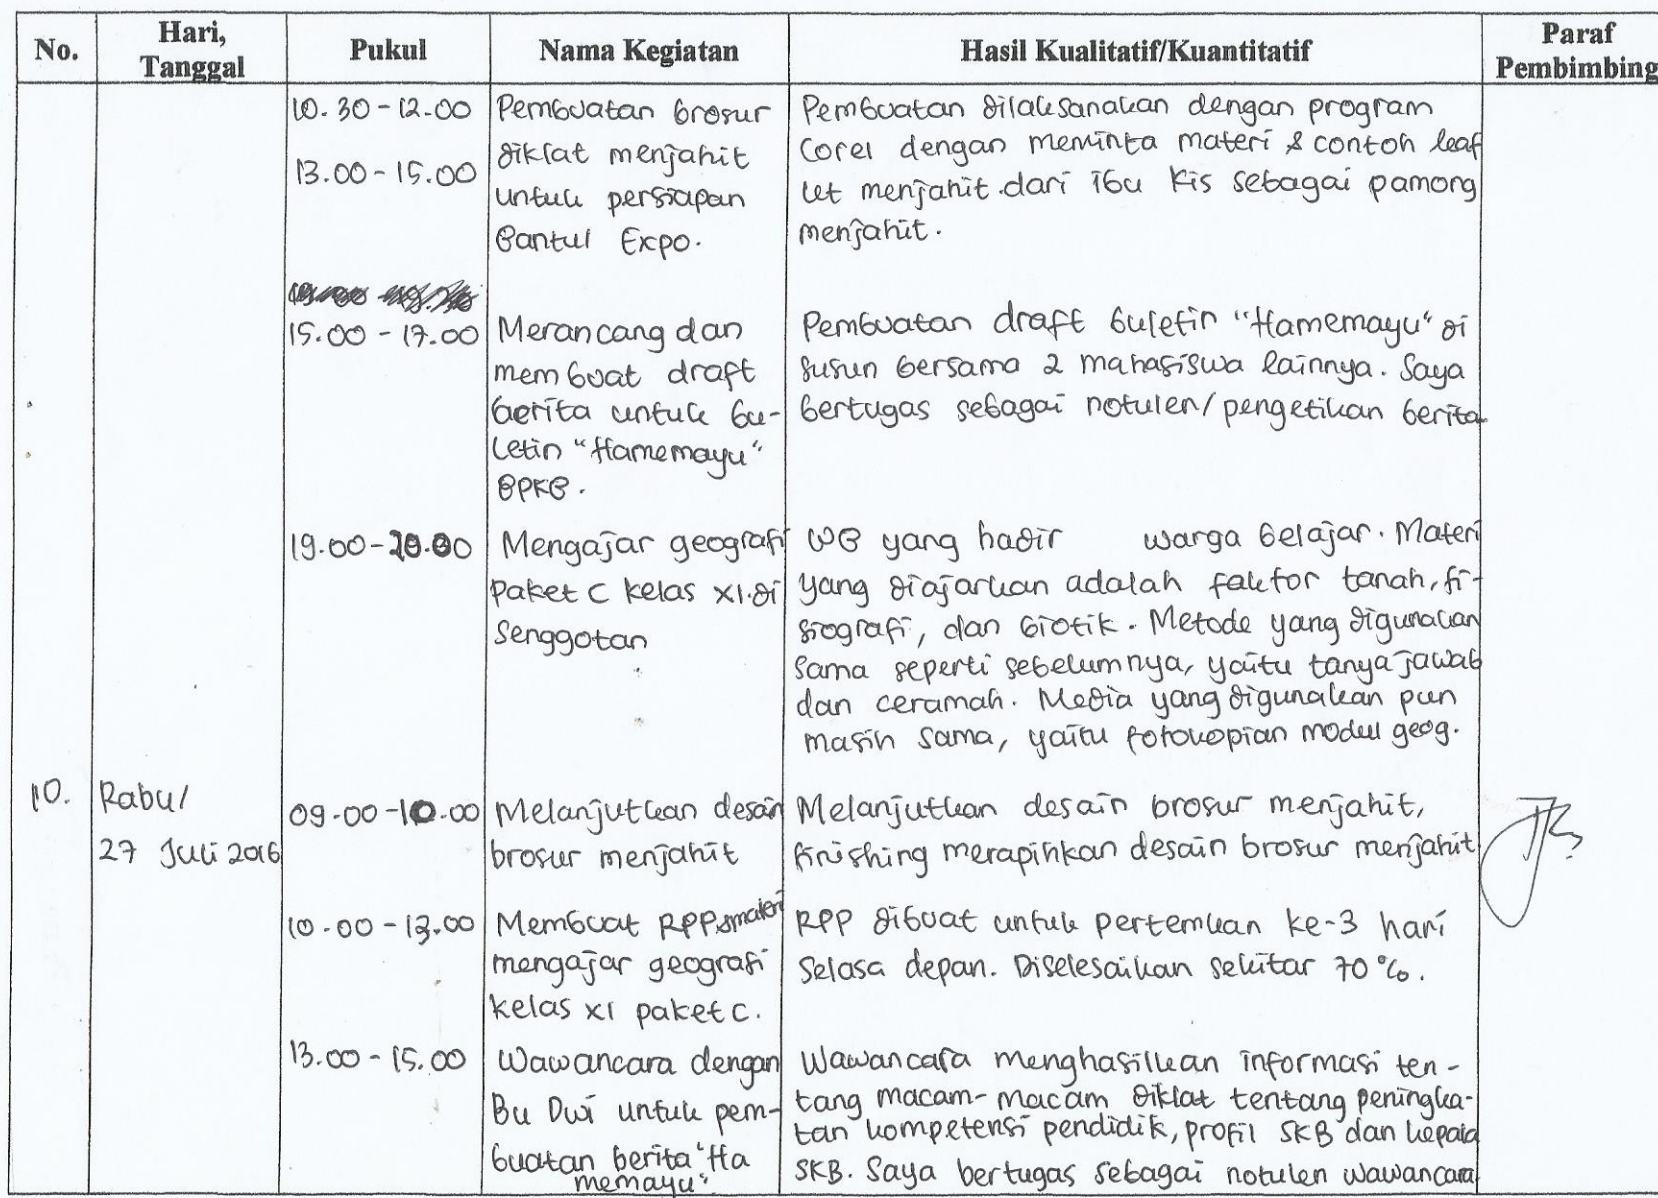 No.
Hari,
Tanggal
Pukul
Nama Kegiatan
Hasil Kualitatif/Kuantitatif
Paraf
Pembimbing
10.30 - 12.00
13.00 - 15.00
Pembuatan brosur
diklat menjahit
untuk persiapan
Bantul Expo.
Pembuatan dilaksanakan dengan program
Corel dengan meminta materi & contoh leaf
let menjahit dari ibu Kis sebagai pamong
menjahit.
15.00 - 17.00
Merancang dan
membuat draft
berita untuk bu-
letin "Hamemayu"
BPKB.
Pembuatan draft buletin "Hamemayu" di
susun bersama 2 mahasiswa lainnya. Saya
bertugas sebagai notulen/pengetikan berita
19.00 - 20.00
Mengajar geografi
Paket C kelas XI di
Senggotan
WB yang hadir warga belajar. Materi
yang diajarkan adalah faktor tanah, fi-
siografi, dan biotik. Metode yang digunakan
sama seperti sebelumnya, yaitu tanya jawab
dan ceramah. Media yang digunakan pun
masih sama, yaitu fotokopian modul geog.
10.
Rabu/
27 Juli 2016
09.00 - 10.00
Melanjutkan desain
brosur menjahit
Melanjutkan desain brosur menjahit,
finishing merapihkan desain brosur menjahit
10.00 - 13.00
Membuat RPP & materi
mengajar geografi
kelas XI paket C.
RPP dibuat untuk pertemuan ke-3 hari
Selasa depan. Diselesaikan sekitar 70%.
13.00 - 15.00
Wawancara dengan
Bu Dwi untuk pem-
buatan berita "Ha
memayu"
Wawancara menghasilkan informasi ten-
tang macam-macam diklat tentang peningka-
tan kompetensi pendidik, profil SKB dan kepala
SKB. Saya bertugas sebagai notulen wawancara